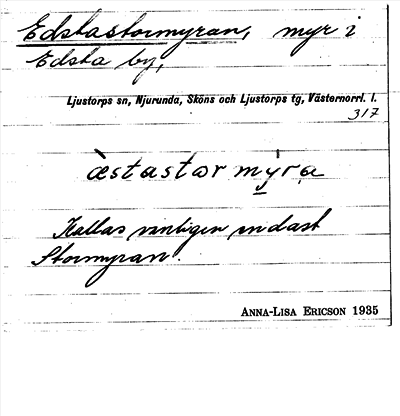 Edstastormyran, myr i
Edsta by,
Ljustorps sn, Njurunda, Sköns och Ljustorps tg, Västernorrl. l.
317
æ̀stastωr my̱̍ra
Kallas vanligen endast
Stormyran.
ANNA-LISA ERICSON 1935